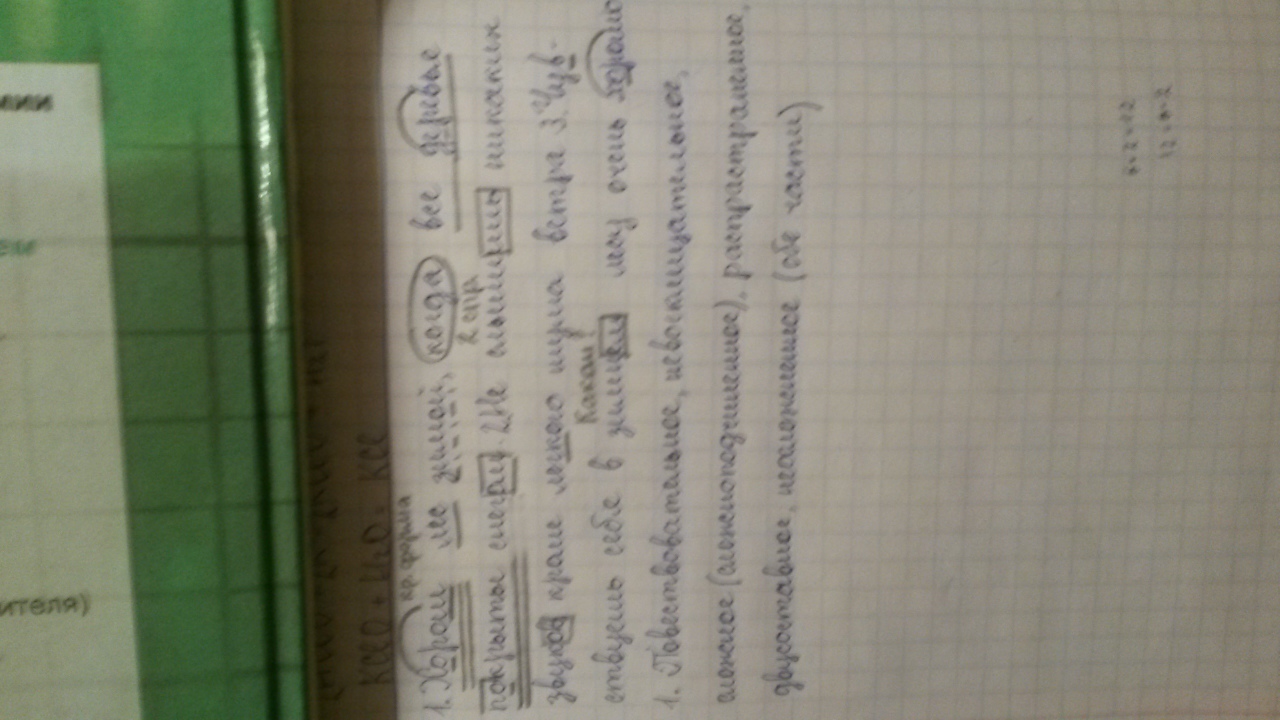 мии
ем
ителя)
кр. форма
1. Хорош лес зимой, когда все деревье
2 спр.
покрыты снегам. 2 Не слышишь никаких
звуков кроме лёгкого шума ветра 3. Чув-
каком?
ствуешь себя в зимнем лесу очень хорошо
1. Повествовательное, невосклицательное,
сложное (сложноподчиненное), распрастраненное,
двусоставное, неосложненное (обе части)